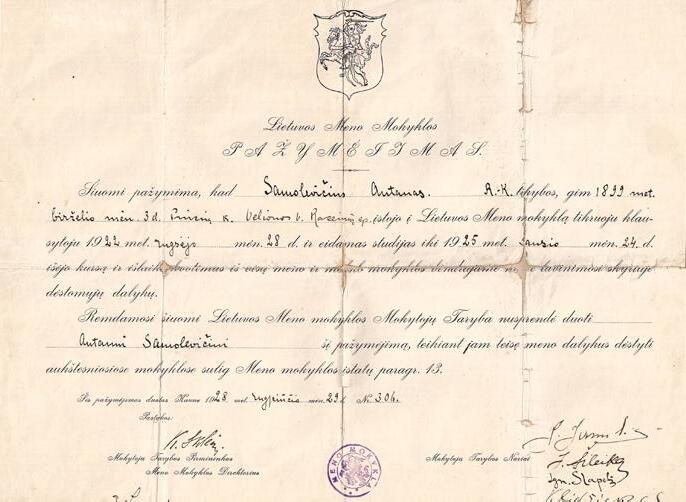 Lietuvos Meno Mokyklos
PAŽYMĖJIMAS.
Šiuomi pažymima, kad Samolevičius Antanas. R.-K. tikybos, gim 1899 met.
birželio mėn. 3 d. k. Velionos v. įstojo į Lietuvos Meno mokyklą tikruoju klau-
sytoju 1922 met. rugsėjo mėn. 28 d. ir eidamas studijas iki 1925 met. sausio mėn. 24 d.
išėjo kursą ir išlaikė kvotimus iš visų meno ir mokslo mokyklos bendrajame lavinimosi skyriuje
dėstomųjų dalykų.
Remdamosi šiuomi Lietuvos Meno mokyklos Mokytojų Taryba nusprendė duoti
Antanui Samolevičiui šį pažymėjimą, teikiant jam teisę meno dalykus dėstyti
aukštesniosiose mokyklose sulig Meno mokyklos įstatų paragr. 13.
Šis pažymėjimas duotas Kaune 1928 met. rugpiučio mėn. 29 d. № 306.
Pastabos:
Mokytojų Tarybos Pirmininkas
Meno Mokyklos Direktorius
Mokytojų Tarybos Nariai
J. Šileika
Ign. Šlapelis
MENO MOKYKLA